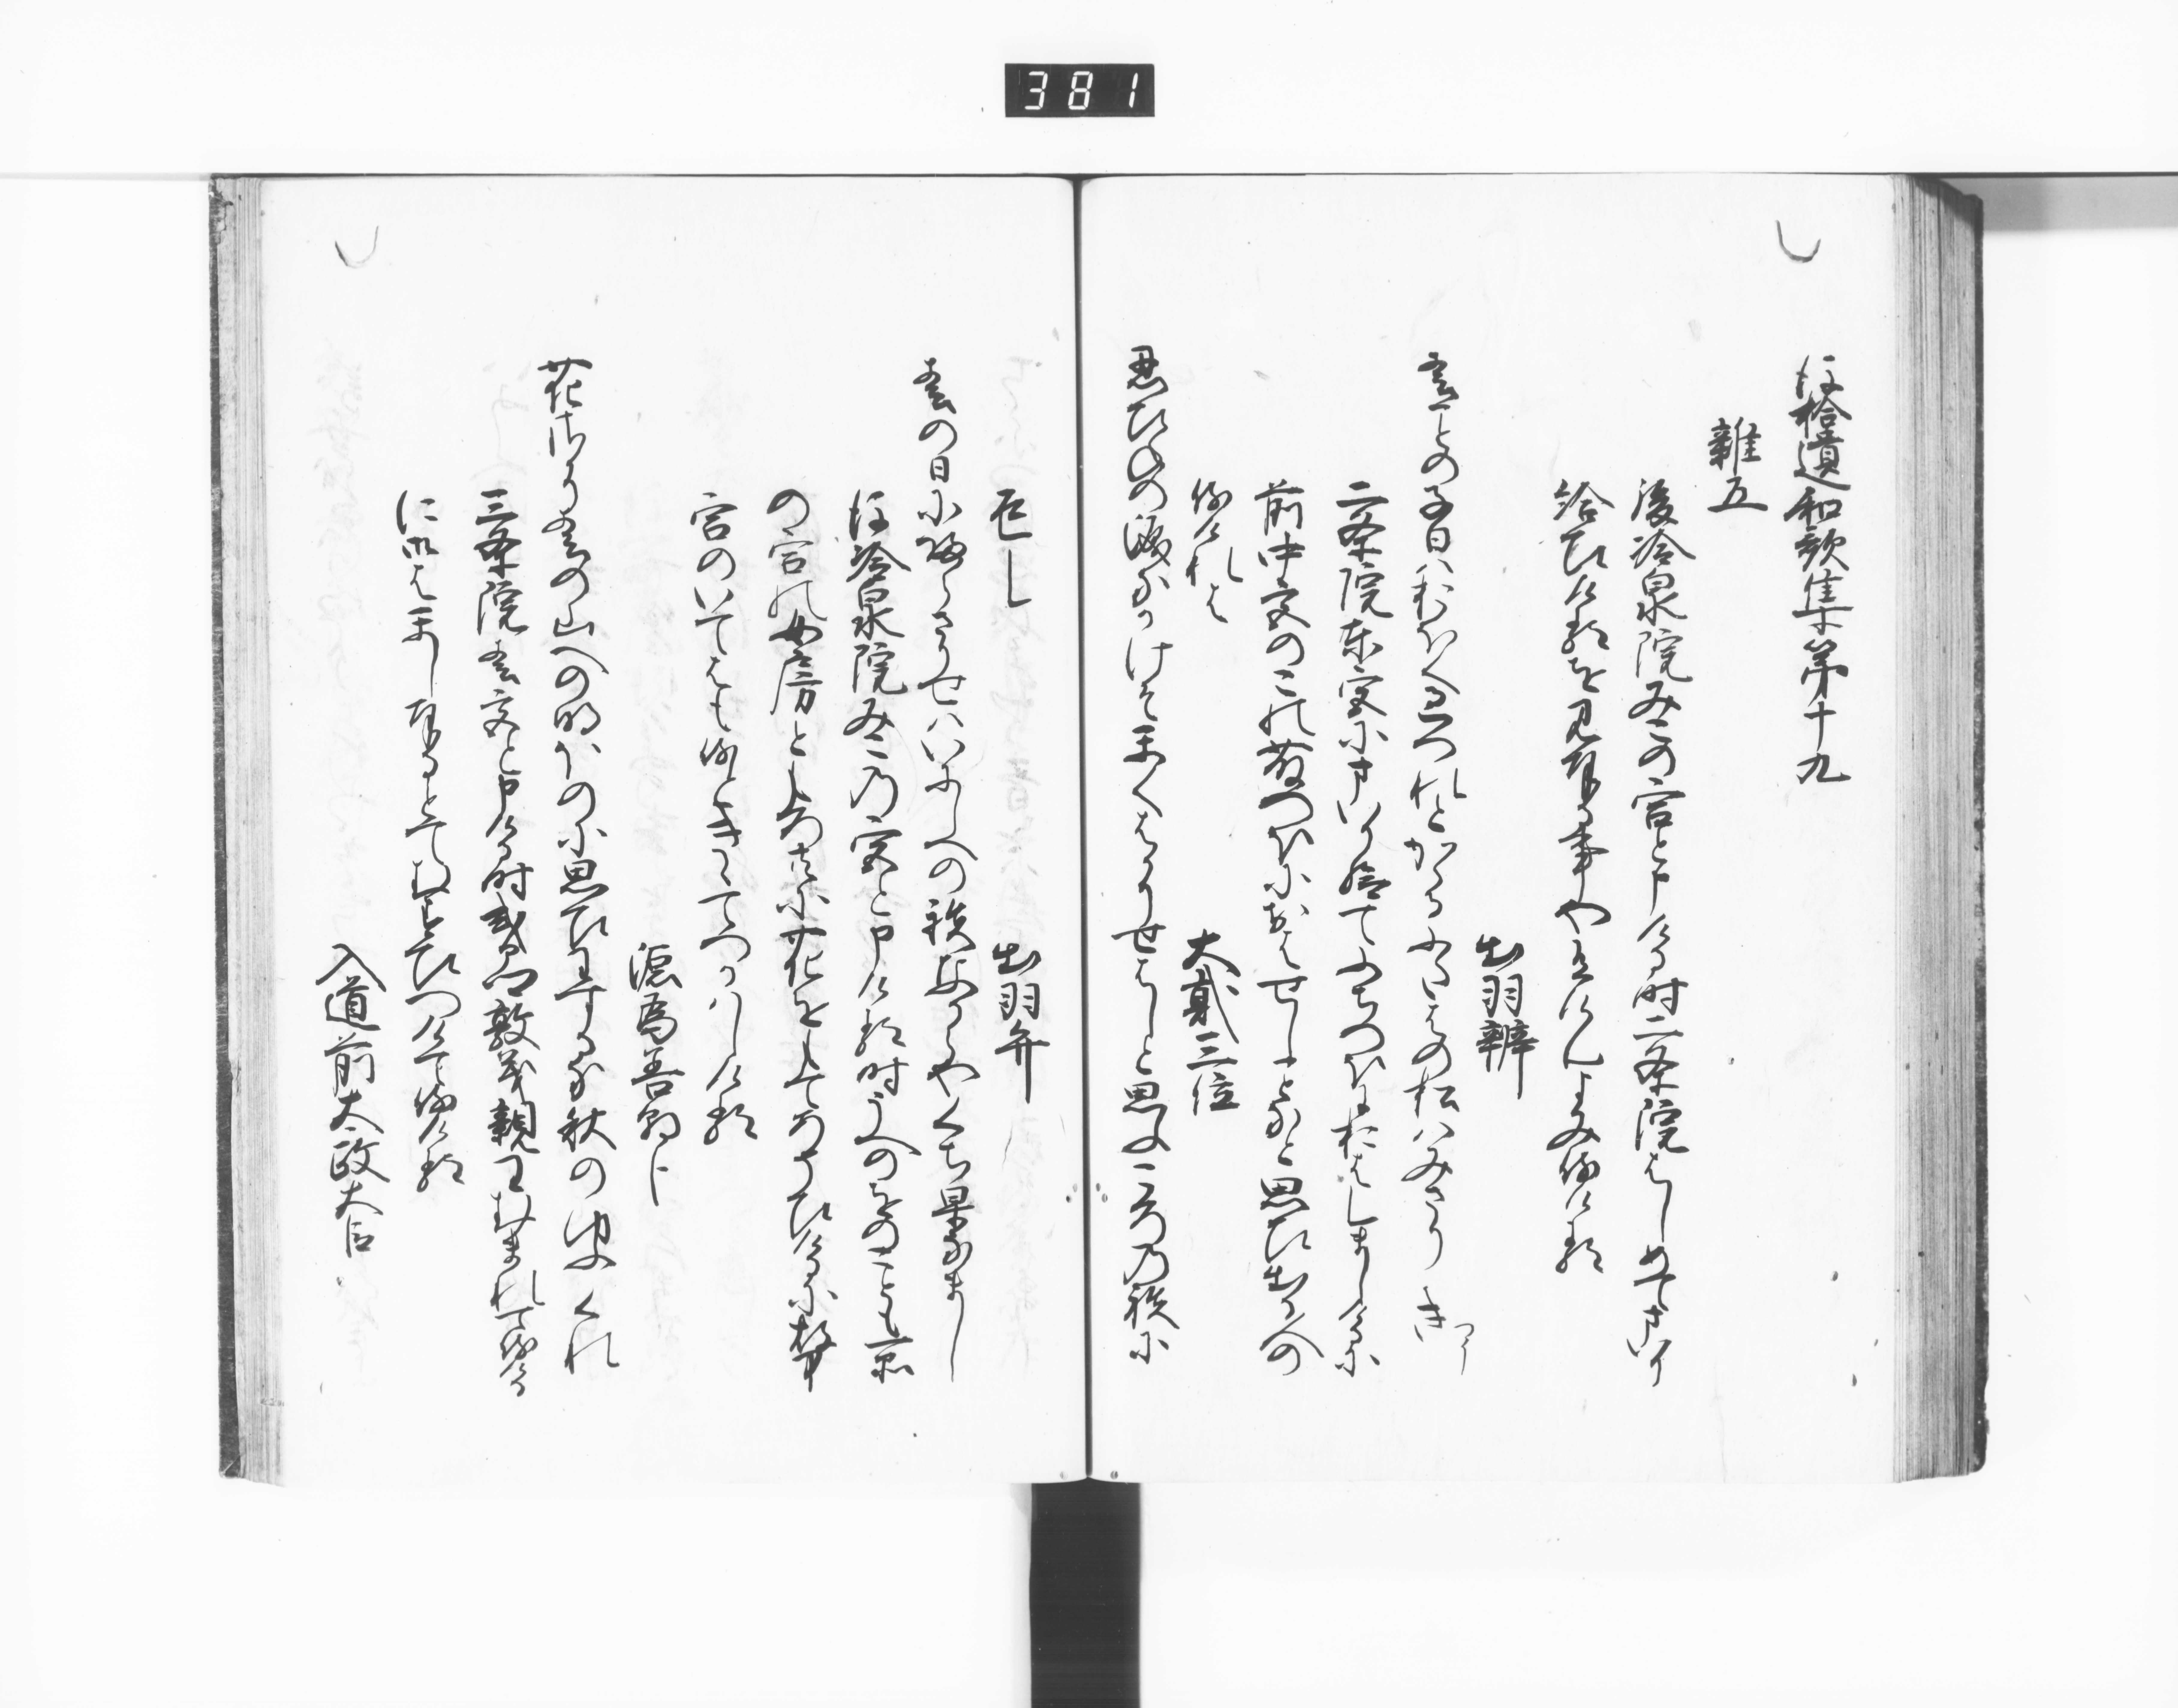 381
後拾遺和歌集第十九
雑五
後冷泉院みこの宮と申ける時二条院はしめてまいり
給ひけるを見たる事やありけんよみ侍ける
出羽辨
春ことの子日はおほくすつれとかゝるふたはの松はみさりき
つ
二条院東宮にまいり給てふちつほにおはしましけるに
前中宮のこの藤つほにおはせしことなと思ひ出る人の
侍けれは
大貳三位
忍ひねの涙なかけそかくはかりせはしと思ふころの袂に
返し
出羽弁
春の日にかへらさりせはいにしへの袂なからやくち果なまし
後冷泉院みこの宮と申ける時うへのをのことも一品
の宮の女房ともろ共に花をもてあそひけるに故中
宮のいてはも侍ときゝてつかはしける
源為善朝臣
花さかり春の山への明ほのに思ひわするな秋の夕くれ
三条院春宮と申ける時式部卿敦儀親王むまれて侍ける
に御はかしたてまつるとてむすひつけて侍ける
入道前太政大臣